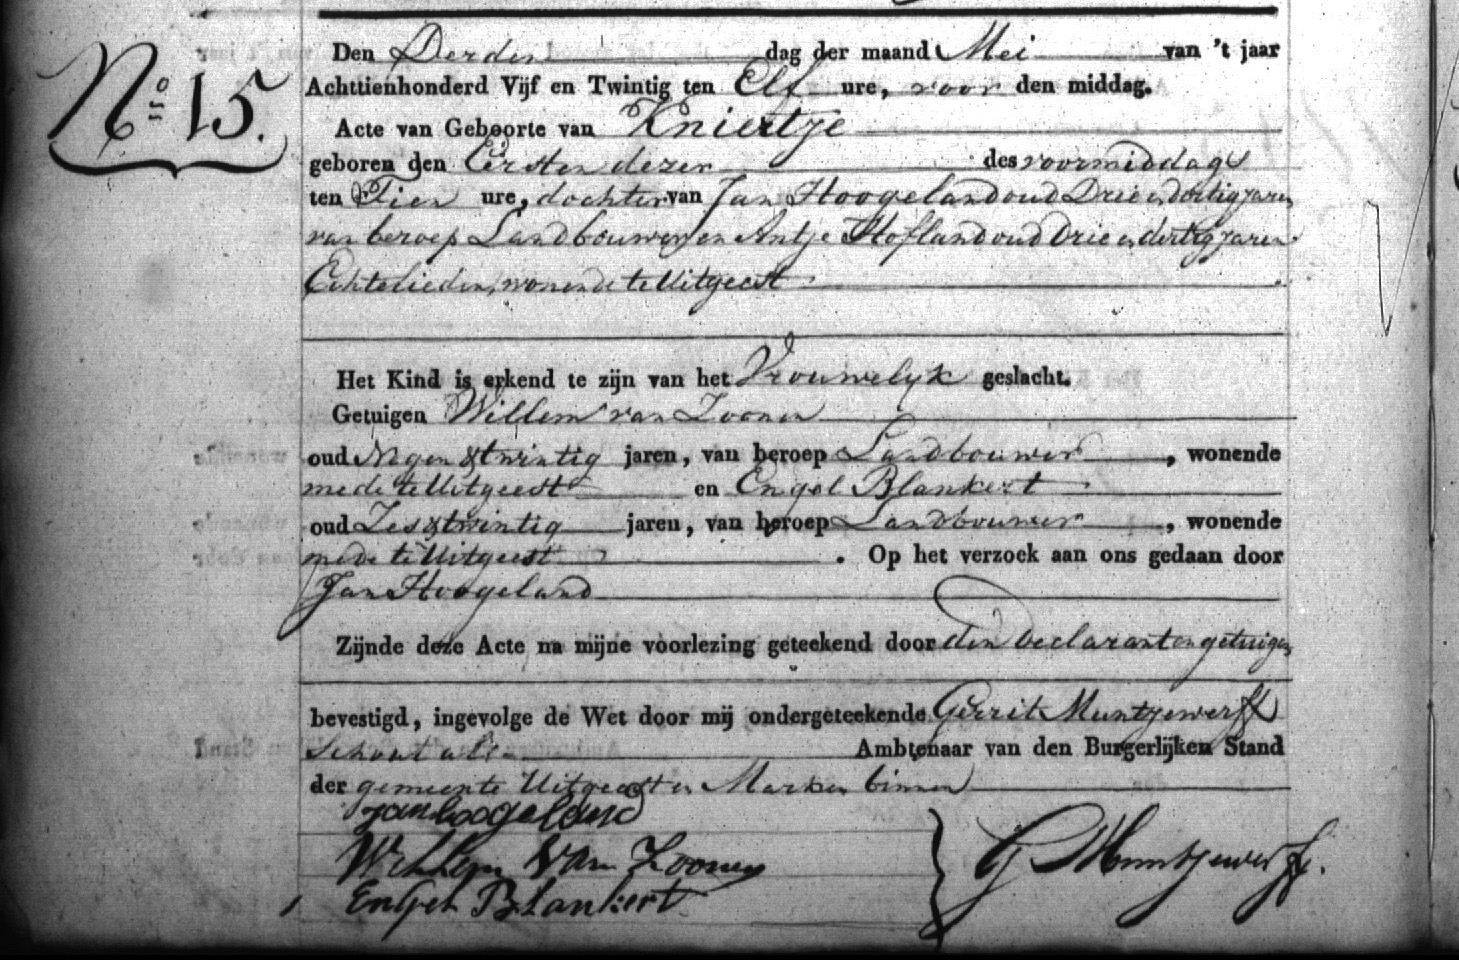 No 15.
Den Derden dag der maand Mei van 't jaar
Achttienhonderd Vijf en Twintig ten Elf ure, voor den middag.
Acte van Geboorte van Kniertje
geboren den Eersten dezer des voormiddags
ten Tien ure, dochter van Jan Hoogeland oud Drie en dertig jaren
van beroep Landbouwer, en Antje Hofland oud Drie en dertig jaren
Echtelieden, wonende te Uitgeest
Het Kind is erkend te zijn van het Vrouwelyk geslacht.
Getuigen Willem van Zoonen
oud Negen & twintig jaren, van beroep Landbouwer, wonende
mede te Uitgeest en Engel Blankert
oud Zes & twintig jaren, van beroep Landbouwer, wonende
mede te Uitgeest. Op het verzoek aan ons gedaan door
Jan Hoogeland
Zijnde deze Acte na mijne voorlezing geteekend door den declarant en getuigen
bevestigd, ingevolge de Wet door mij ondergeteekende Gerrit Muntjewerff
Schout als Ambtenaar van den Burgerlijken Stand
der gemeente Uitgeest en Marken binnen
Jan hoogeland
Willem Van Zoonen
Engel Blankert
G Muntjewerff.